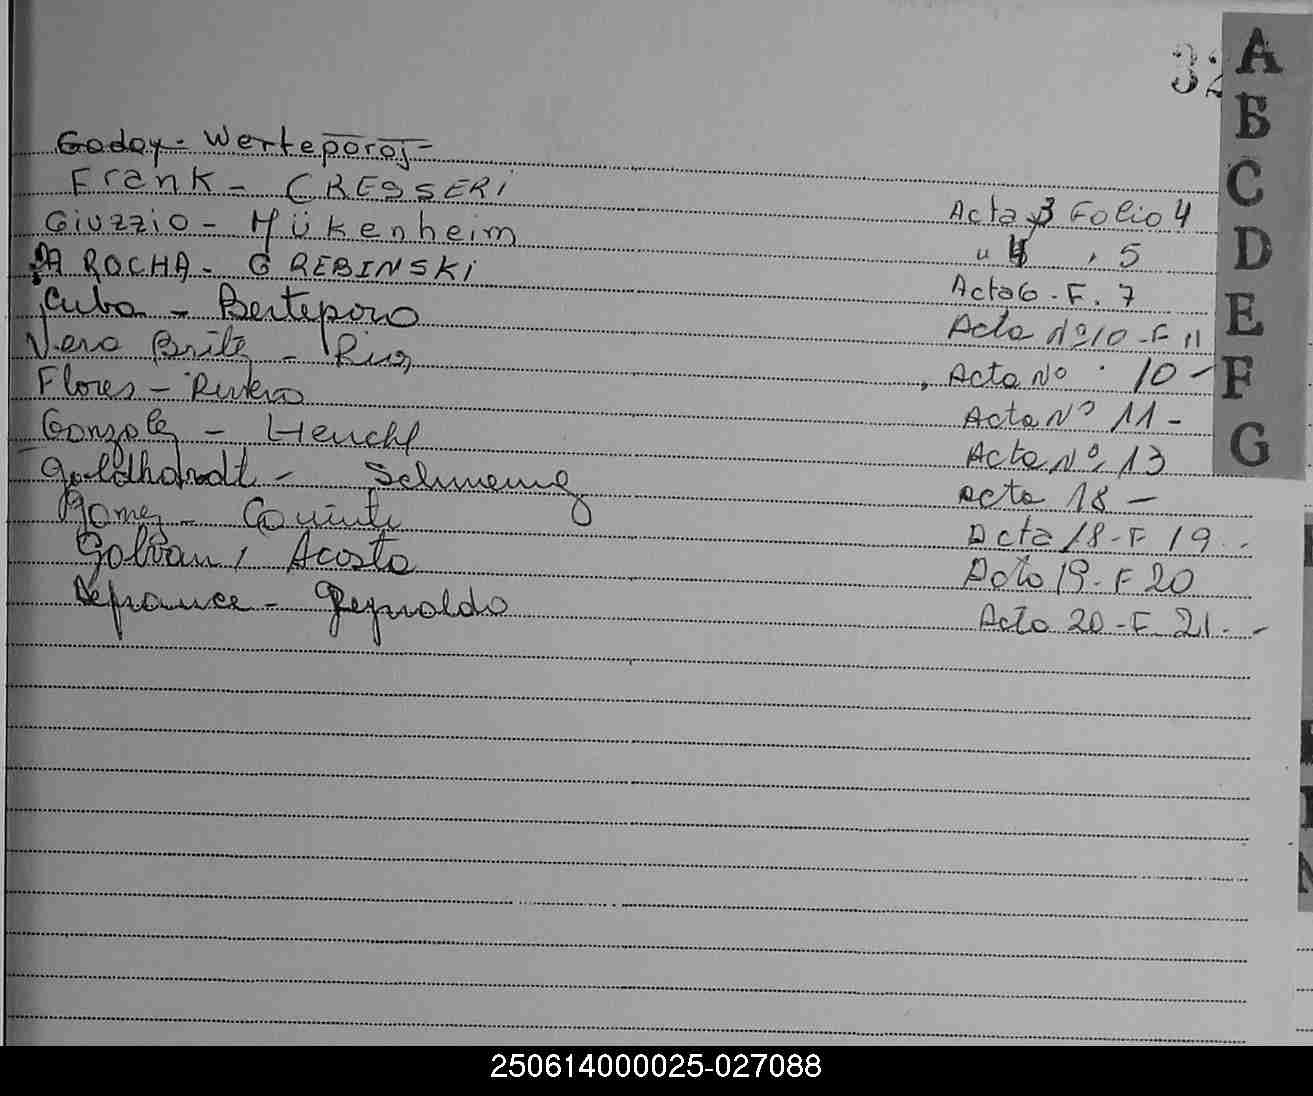 32
A
B
C
D
E
F
G
Godoy - Werteporoj -
Frank - CRESSERI Acta 3 Folio 4
Giuzzio - Mükenheim " 4 , 5
DA ROCHA - GREBINSKI Acta 6 - F. 7
Cuba - Berteporo Acta Nº 10 - F 11
Vera Britz - Acta Nº 10 -
Flores - Rivero Acta Nº 11 -
Gonzalez - Acta Nº 13
- Acta 18 -
Gomez - Acta 18 - F 19 -
Galvan, Acosta Acta 19 - F 20
Defrance - Reynoldo Acta 20 - F. 21. -
250614000025-027088